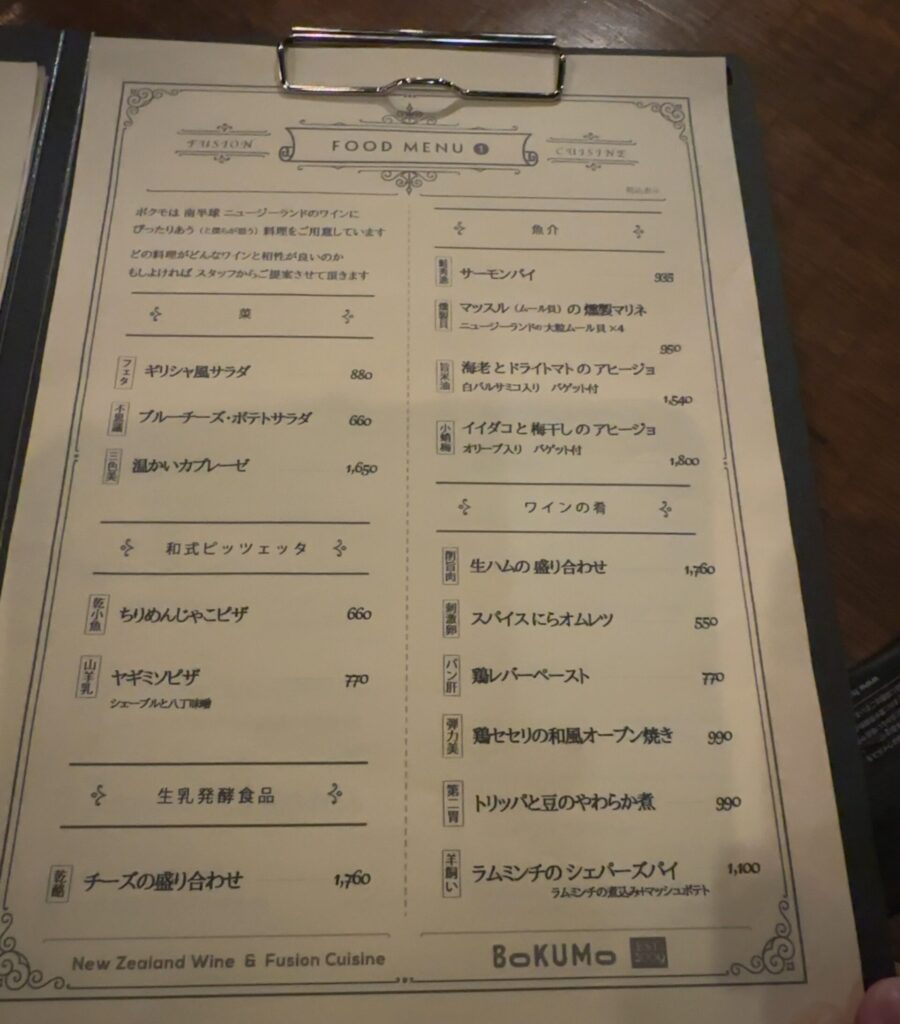 FUSION
FOOD MENU 1
CUISINE
税込表示
ボクモは 南半球 ニュージーランドのワインに
ぴったりあう（と僕らが思う）料理をご用意しています
どの料理がどんなワインと相性が良いのか
もしよければ スタッフからご提案させて頂きます
菜
フェタ ギリシャ風サラダ 880
不思議 ブルーチーズ・ポテトサラダ 660
三色美 温かいカプレーゼ 1,650
和式ピッツェッタ
乾小魚 ちりめんじゃこピザ 660
山羊乳 ヤギミソピザ 770
シェーブルと八丁味噌
生乳発酵食品
乾酪 チーズの盛り合わせ 1,760
魚介
サーモンパイ 935
燻製貝 マッスル（ムール貝）の 燻製マリネ
ニュージーランドの 大粒ムール貝 ×4
950
旨米油 海老とドライトマトのアヒージョ
白バルサミコ入り バゲット付
1,540
小蛸梅 イイダコと梅干しのアヒージョ
オリーブ入り バゲット付
1,800
ワインの肴
削旨肉 生ハムの 盛り合わせ 1,760
刺激卵 スパイスにらオムレツ 550
パン肝 鶏レバーペースト 770
弾力美 鶏セセリの和風オーブン焼き 990
第二胃 トリッパと豆のやわらか煮 990
羊飼い ラムミンチの シェパーズパイ 1,100
ラムミンチの煮込み+マッシュポテト
New Zealand Wine & Fusion Cuisine
BoKUMo
EST. 2009